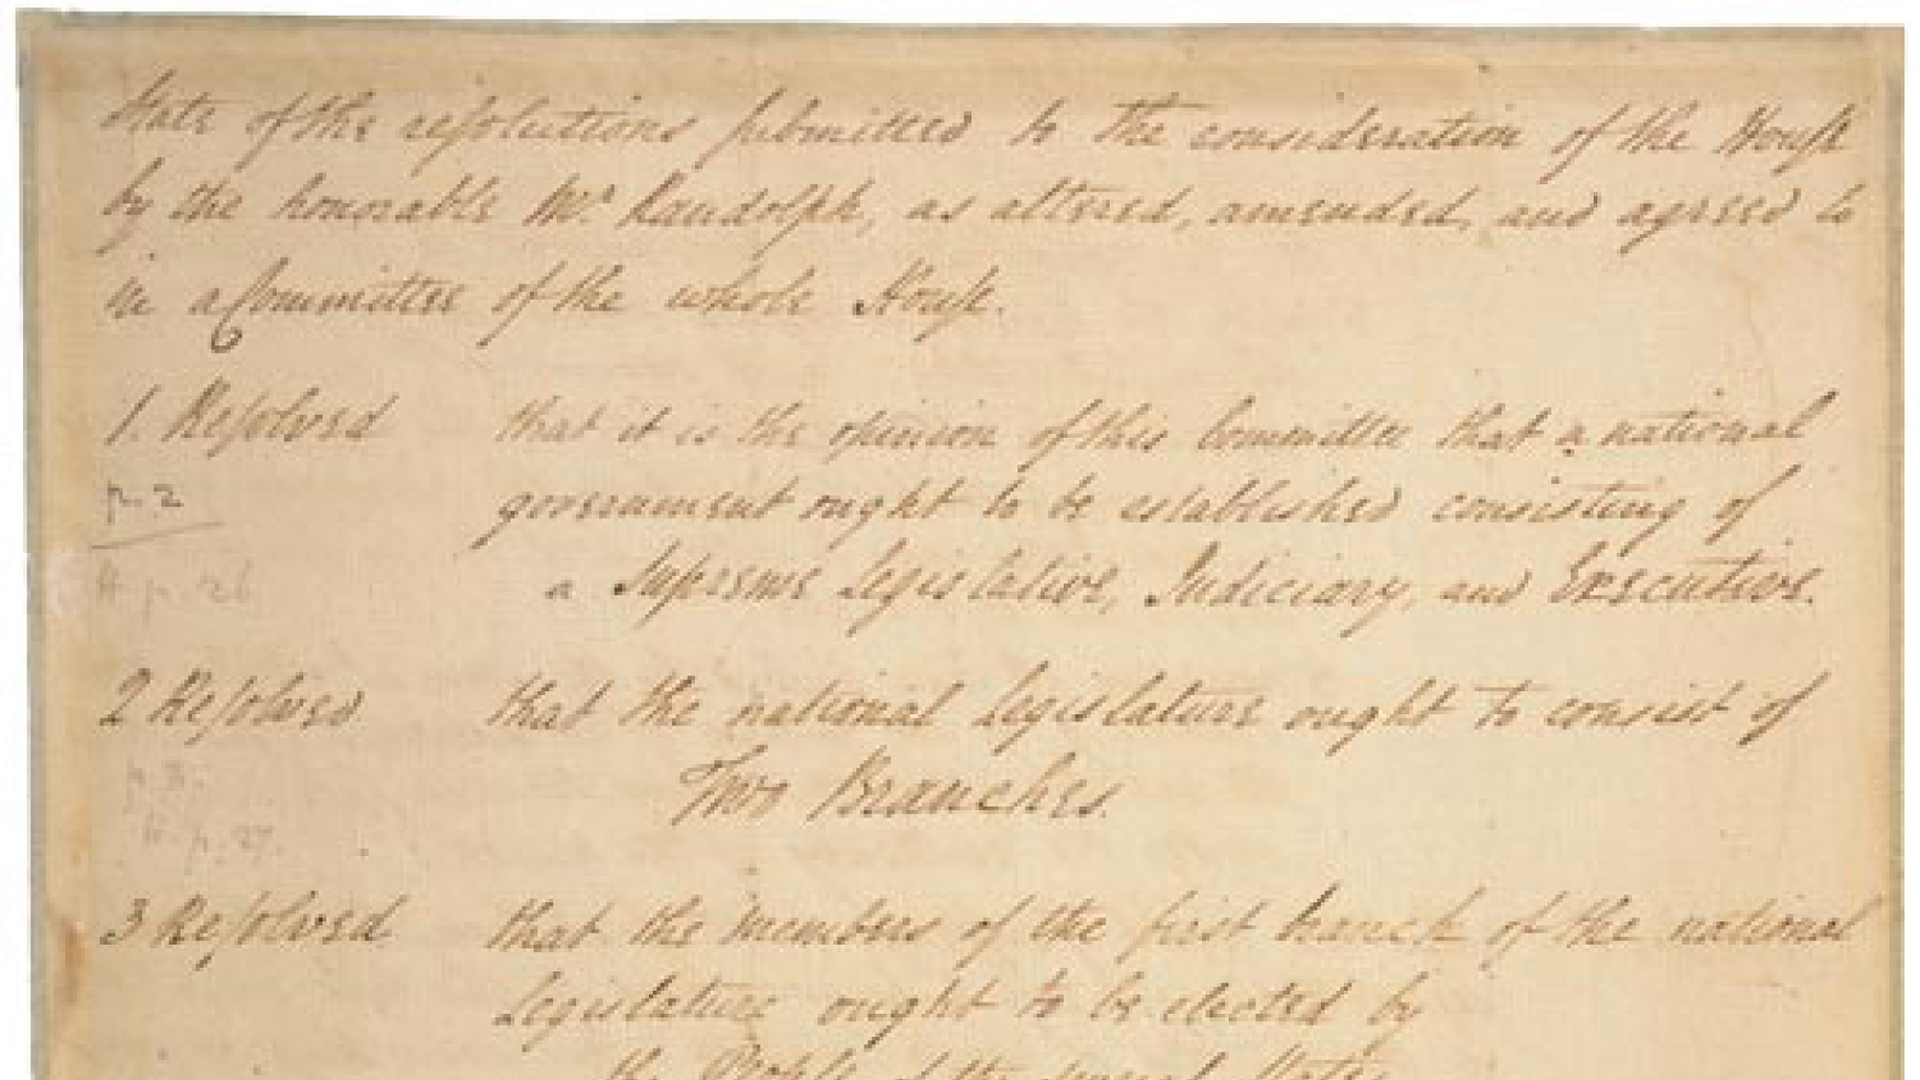 State of the resolutions submitted to the consideration of the House
by the honorable Mr. Randolph, as altered, amended, and agreed to
in a Committee of the whole House.
1. Resolved that it is the opinion of this Committee that a national
p. 2
government ought to be established consisting of
a Supreme Legislative, Judiciary, and Executive.
p. 26
2 Resolved that the national Legislature ought to consist of
Two Branches.
p. 27.
3 Resolved that the members of the first branch of the national
Legislature ought to be elected by
the People of the several States